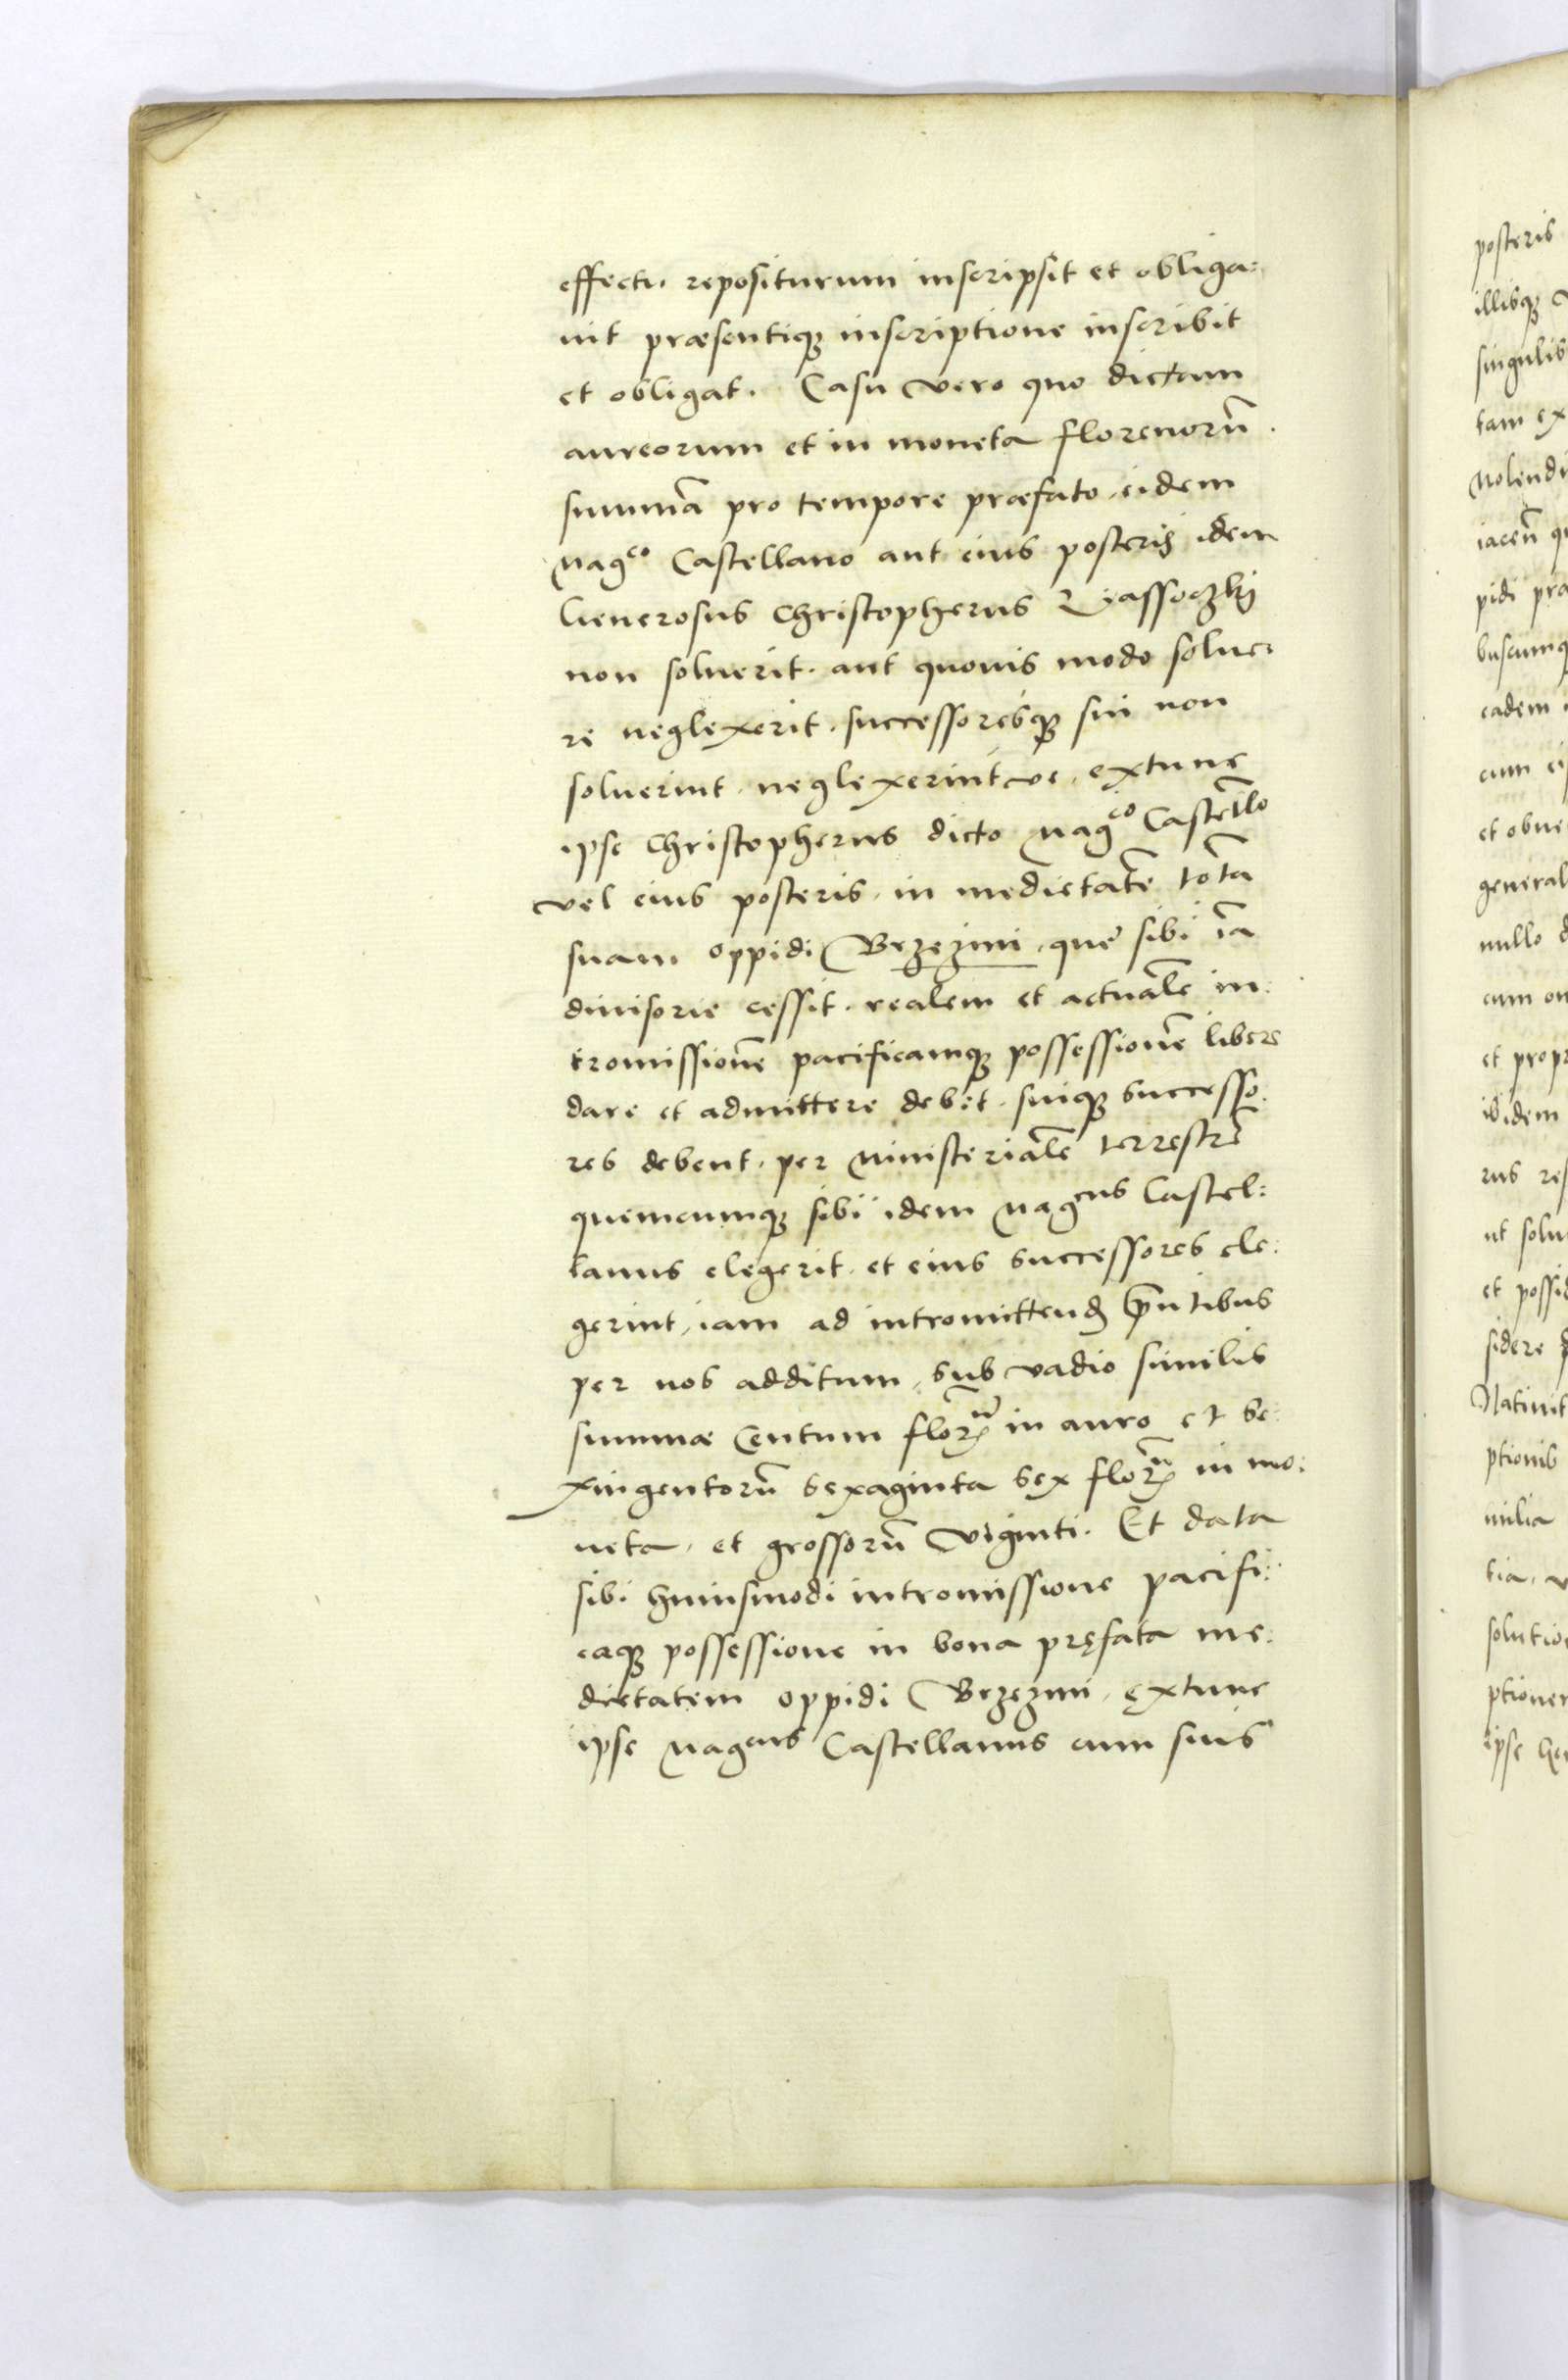 effectu. repositurum inscripsit et obliga:
uit præsentique inscriptione inscribit
et obligat. Casu vero quo dictam
aureorum et in moneta florenorũ
summã pro tempore præfato, eidem
Magco Castellano aut eius posteris idem
Generosus Christopherus Liassoczkij
non soluerit. aut quouis modo solue:
re neglexerit. successoresque sui non
soluerint. neglexerintve, extunc
ipse Christopherus dicto Magco Castello
vel eius posteris, in medietatẽ totã
suam oppidi Brzezini, que sibi iã
diuisorie cessit. realem et actualẽ in:
tromissionẽ pacificamque possessionẽ libere
dare et admittere debet. suique successo:
res debent, per Ministerialẽ terrestrẽ
quemcumque sibi idem Magcus Castel:
lanus elegerit. et eius successores ele:
gerint, iam ad intromittend pñtibus
per nos additum, sub vadio similis
summæ Centum florñ in auro et se:
xingentorũ sexaginta sex florñ in mo:
neta, et grossorũ viginti. Et data
sibi huiusmodi intromissione pacifi:
caque possessione in bona pręfata me:
dietatem oppidi Brzezini, extunc
ipse Magcus Castellanus cum suis
posteris
illisque
singulis
tam ex
Molendi
iaceñ
pidi præ
buscumq
eadem
cum
et obue
general
nullo
cum om
et propr
ibidem
rus res
ut solu
et possid
sidere
Natiuit
ptionis
milia
tia,
solutio
ptionem
ipse